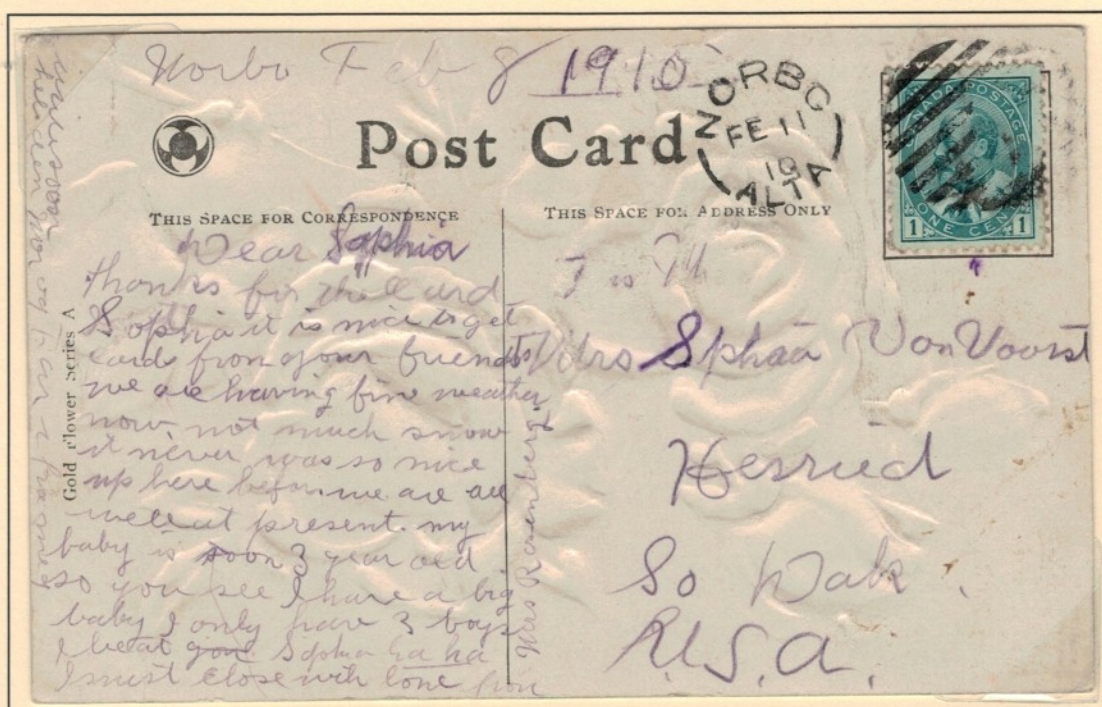 Norbo Feb 8 1910
NORBO
FE 11
10
ALTA
CANADA POSTAGE
ONE CENT
1 1
Post Card
THIS SPACE FOR CORRESPONDENCE
THIS SPACE FOR ADDRESS ONLY
Dear Sophia
thanks for the card
Sophia it is nice to get
cards from your friends
we are having fine weather
now not much snow
it never was so nice
up here before we are all
well at present. my
baby is soon 3 year old
so you see I have a big
baby I only have 3 boys
I beat you Sophia ha ha
I must close with love from
Mrs Rosenberg
Gold Flower Series A
Mrs Sphaa VanVoorst
Herried
So Dak.
U.S.A.